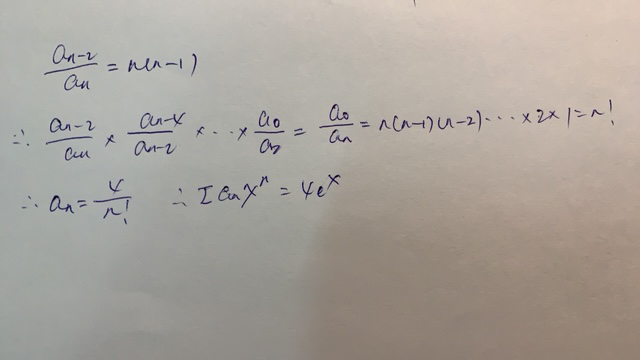 aₙ₋₂/aₙ = n(n-1)
∴ aₙ₋₂/aₙ × aₙ₋₄/aₙ₋₂ × ··· × a₀/a₂ = a₀/aₙ = n(n-1)(n-2)···×2×1=n!
∴ aₙ = 4/n! ∴ Σ aₙxⁿ = 4eˣ